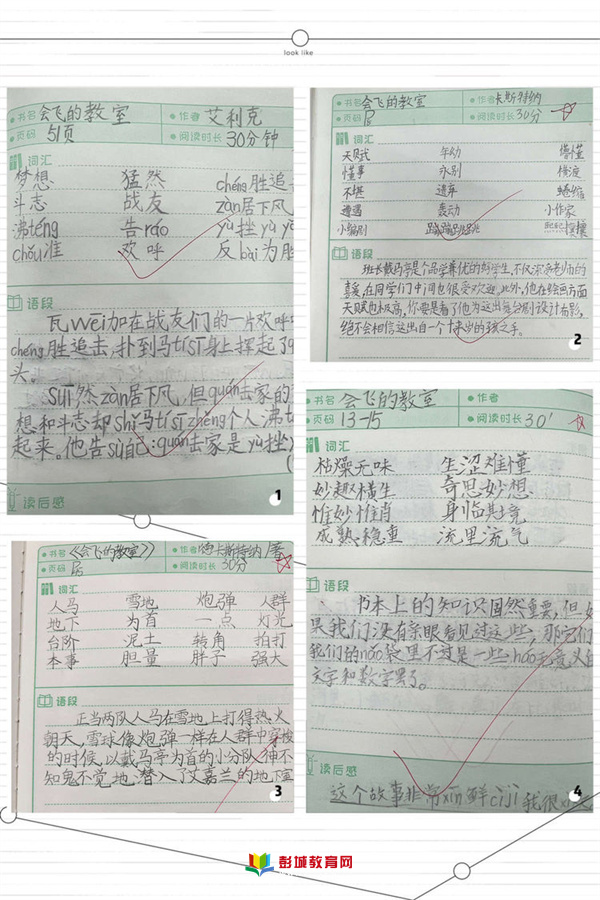 look like
书名 会飞的教室 作者 艾利克
页码 51页 阅读时长 30分钟
词汇
梦想 猛然 chéng胜追
斗志 战友 zàn居下风
沸téng 告ráo yù挫yù
chǒu准 欢呼 反bài为胜
语段
瓦wēi加在战友们的一片欢呼
chéng胜追击,扑到马tísī身上挥起了
头。
suī然zàn居下风,但quán击家的
想和斗志却shǐ马tísī zhěng个人沸t
起来。他告sù自己:quán击家是yù挫
读后感
1
书名 会飞的教室 作者 卡斯特纳
页码 阅读时长 30分
词汇
天赋 年幼 懵懂
懂事 永别 横渡
不堪 遗弃 蜷缩
遭遇 轰动 小作家
小编剧
语段
班长戴马亭是个品学兼优的好学生,不仅深受老师的
喜爱,在同学们中间也很受欢迎。此外,他在绘画方面
天赋也极高,你要是看了他为这出舞台剧设计布影,
绝不会相信这出自一个十来岁的孩之手。
2
书名 《会飞的教室》 作者 卡斯特纳 著
页码 阅读时长 30分
词汇
人马 雪地 炮弹 人群
地下 为首 一点 灯光
台阶 泥土 转角 拍打
本事 胆量 胖子 强大
语段
正当两队人马在雪地上打得热火
朝天,雪球像炮弹一样在人群中穿梭
的时候,以戴马亭为首的小分队神不
知鬼不觉地潜入了艾嘉兰的地下室
3
书名 会飞的教室 作者
页码 13-15 阅读时长 30'
词汇
枯燥无味 生涩难懂
妙趣横生 奇思妙想
惟妙惟肖 身临其境
成熟稳重 流里流气
语段
书本上的知识固然重要,但如
果我们没有亲眼看见过这些,那它们
我们的nǎo袋里不过是一些háo无意义的
文字和数字罢了。
读后感
这个故事非常xīn鲜cìjī我很
4
彭城教育网